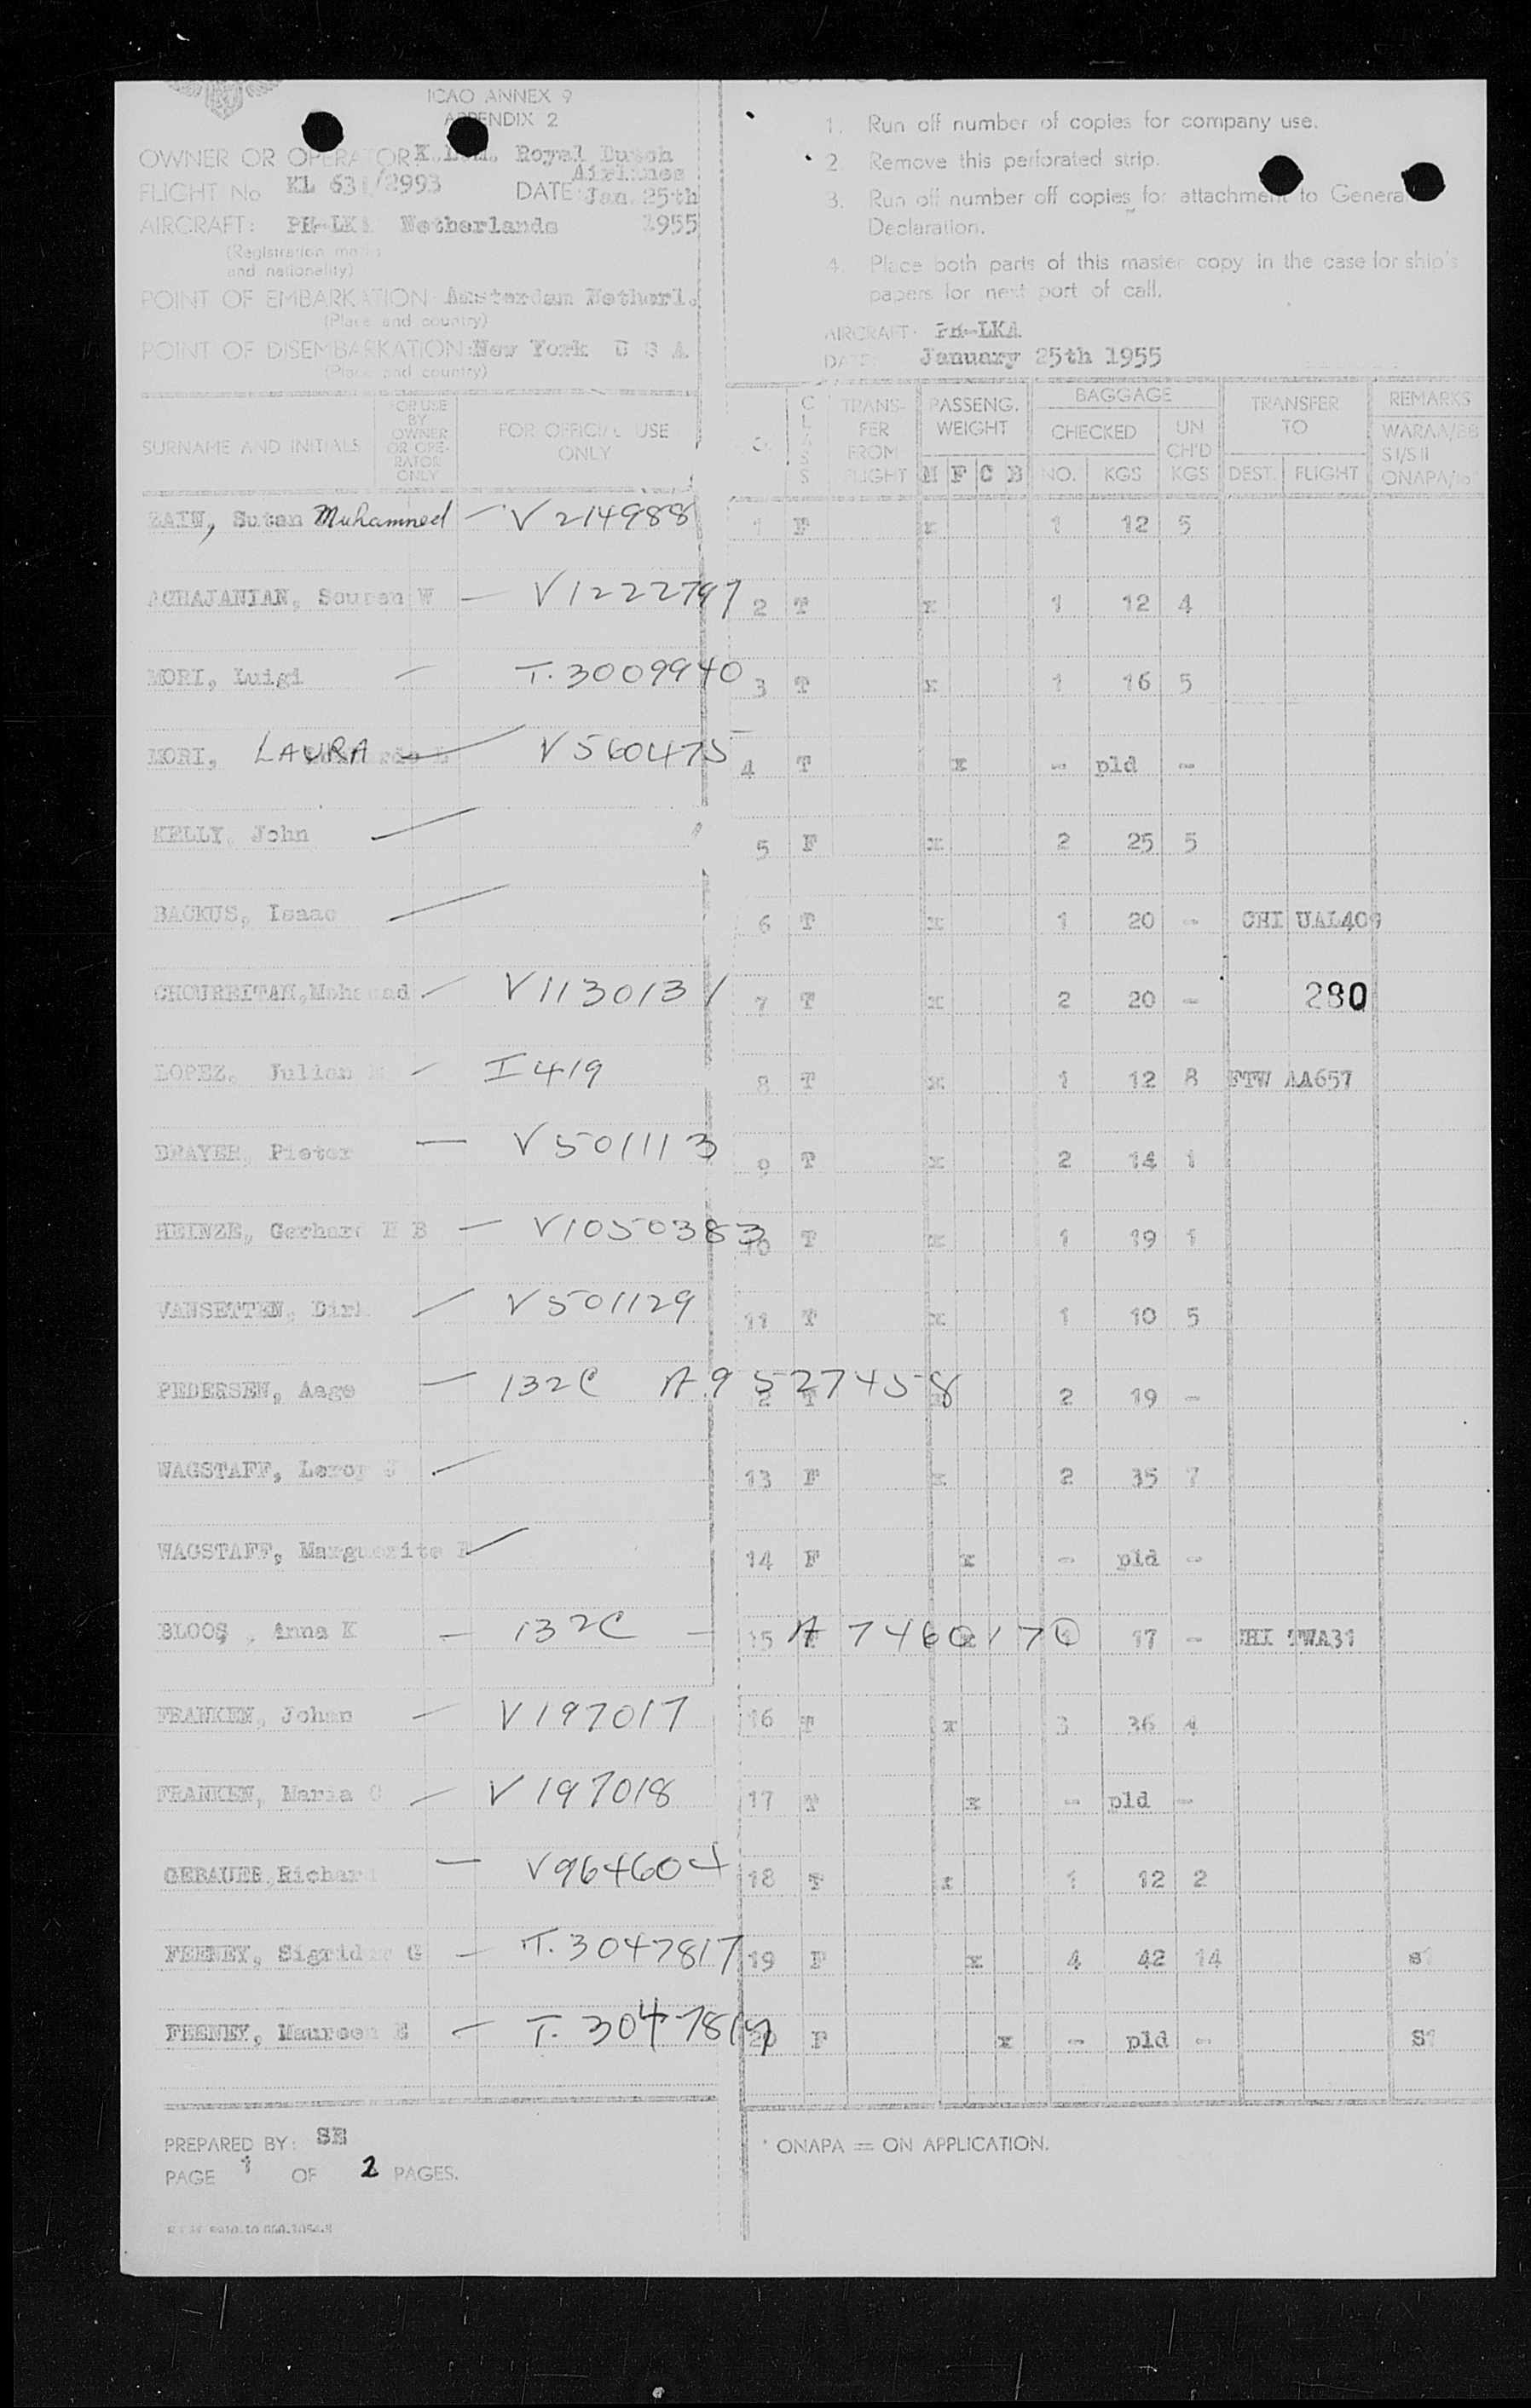 ICAO ANNEX 9
APPENDIX 2
OWNER OR OPERATOR: K.L.M. Royal Dutch
Airlines
FLIGHT No KL 631/2993 DATE: Jan. 25th
AIRCRAFT: PH-LKA Netherlands 1955
(Registration marks
and nationality)
POINT OF EMBARKATION: Amsterdam Netherl.
(Place and country)
POINT OF DISEMBARKATION: New York U S A
(Place and country)
1. Run off number of copies for company use.
2. Remove this perforated strip.
3. Run off number off copies for attachment to General
Declaration.
4. Place both parts of this master copy in the case for ship's
papers for next port of call.
AIRCRAFT: PH-LKA
DATE: January 25th 1955
SURNAME AND INITIALS
FOR USE
BY
OWNER
OR OPE-
RATOR
ONLY
FOR OFFICIAL USE
ONLY
CLASS
TRANS-
FER
FROM
FLIGHT
PASSENG.
WEIGHT
M F C B
BAGGAGE
CHECKED
NO. KGS
UN
CH'D
KGS
TRANSFER
TO
DEST. FLIGHT
REMARKS
S I/S II
ZAIN, Sutan Muhammed — V 214988 1 F x 1 12 5
AGHAJANIAN, Souren W — V1222797 2 T x 1 12 4
MORI, Luigi — T. 3009940 3 T x 1 16 5
MORI, LAURA — V 560475 4 T x - pld -
KELLY, John 5 F x 2 25 5
BACKUS, Isaac 6 T x 1 20 - CHI UAL409
CHOUREITAH, Mohamad — V1130131 7 T x 2 20 - 280
LOPEZ, Julian — I 419 8 T x 1 12 8 FTW AA657
DRAYER, Pieter — V 501113 9 T x 2 14 1
HEINZE, Gerhard H B — V1050383 10 T x 1 19 1
VANSETTEN, Dirk V 501129 11 T x 1 10 5
PEDERSEN, Aage — 132C A9527458 12 T x 2 19 -
WAGSTAFF, Leroy J 13 F x 2 35 7
WAGSTAFF, Marguerite 14 F x - pld -
BLOOS, Anna K — 132C — A7460170 15 x 1 17 - CHI TWA31
FRANKEN, Johan — V197017 16 T x 3 36 4
FRANKEN, Maria C — V 197018 17 T x - pld -
GEBAUER, Richard — V964604 18 T x 1 12 2
FEENEY, Sigrid G — T. 3047817 19 F x 4 42 14 S1
FEENEY, Maureen E — T. 20 F x - pld - S1
PREPARED BY: SE
PAGE 1 OF 2 PAGES.
* ONAPA = ON APPLICATION.